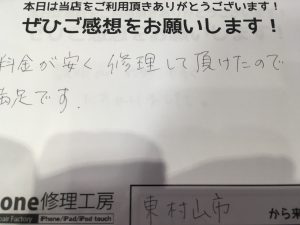 本日は当店をご利用頂きありがとうございます！
ぜひご感想をお願いします！
料金が安く修理して頂けたので
満足です.
one修理工房
pair Factory iPhone/iPad/iPod touch
東村山市 から来